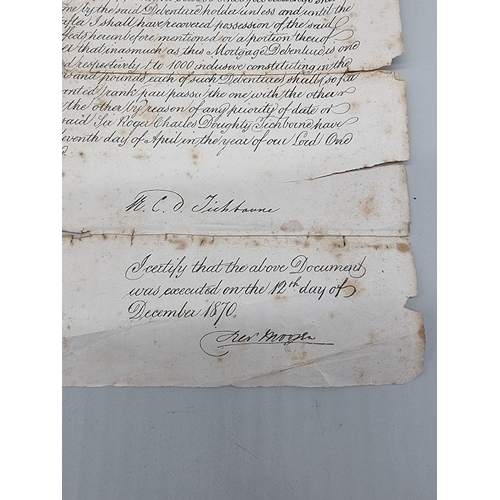 me by the said Debenture holder unless and until the
I shall have recovered possession of the said
effects hereinbefore mentioned or a portion thereof
that inasmuch as this Mortgage Debenture is one
respectively 1 to 1000 inclusive constituting in the
pounds each of such Debentures shall so far
rank pari passu the one with the other
the other by reason of any priority of date or
said Sir Roger Charles Doughty Tichborne have
day of April in the year of our Lord One
R. C. D. Tichborne
I certify that the above Document
was executed on the 12th day of
December 1870.